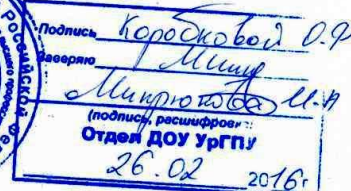 Подпись Коробковой О.Ф
Заверяю
Микрюкова И.А
(подпись, расшифров
Отдел ДОУ УрГПУ
26.02 2016г
Российской Фе